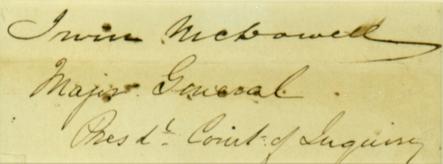 Irvin McDowell
Major General
Presdt. Court of Inquiry